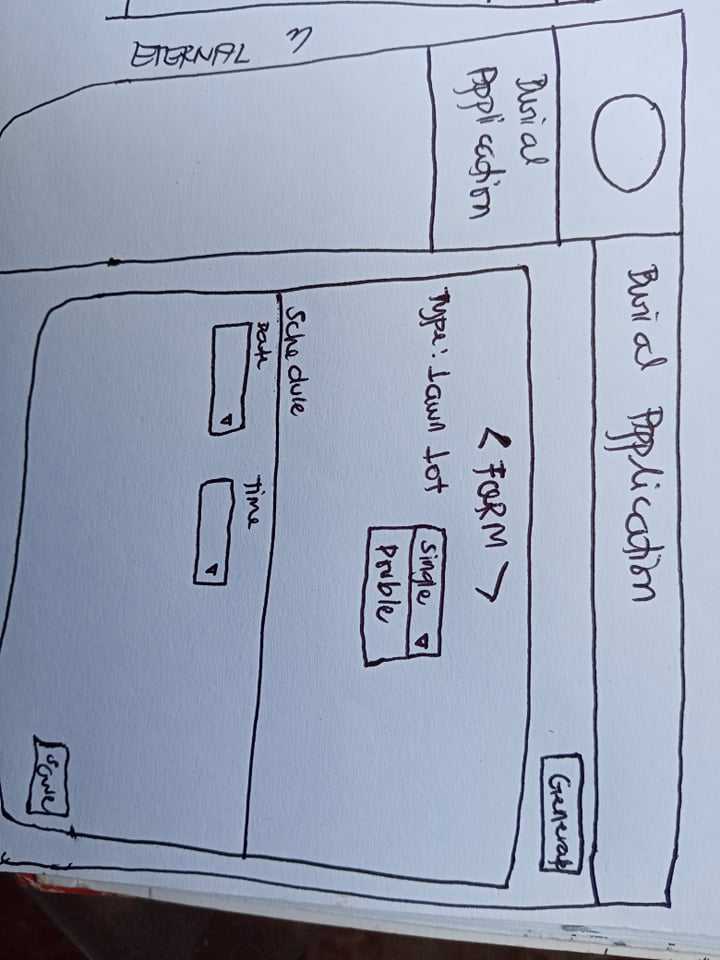 Burial Application
Burial
Application
General
< FORM >
Type: Lawn Lot
Single
Double
Schedule
Date
Time
Save
ETERNAL